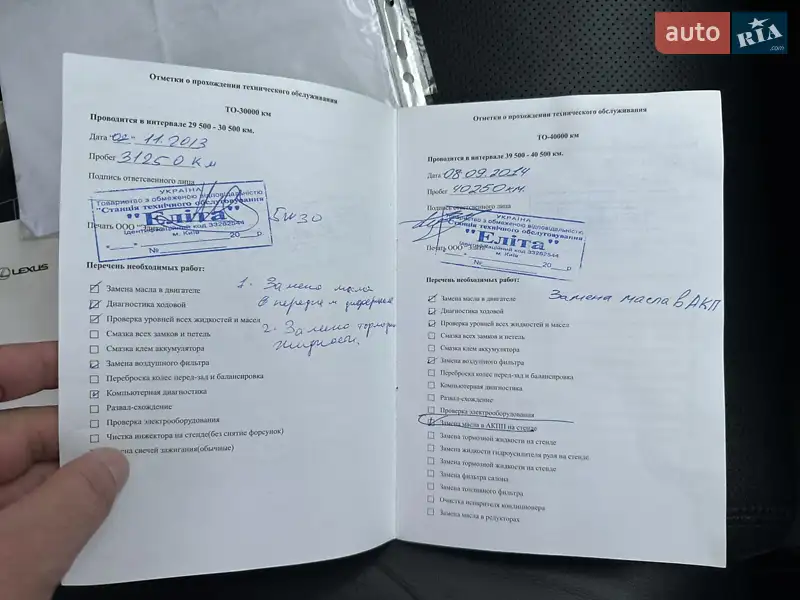 auto RIA .com
LEXUS
Отметки о прохождении технического обслуживания
ТО-30000 км
Проводится в интервале 29 500 - 30 500 км.
Дата 02-11.2013
Пробег 31250 км
Подпись ответсвенного лица
УКРАЇНА
Товариство з обмеженою відповідальністю
"Станція технічного обслуговування
"Еліта"
Печать ООО
Ідентифікаційний код 33262544
м. Київ
20 р
№
5w30
Перечень необходимых работ:
Замена масла в двигателе
Диагностика ходовой
Проверка уровней всех жидкостей и масел
Смазка всех замков и петель
Смазка клем аккумулятора
Замена воздушного фильтра
Переброска колес перед-зад и балансировка
Компьютерная диагностика
Развал-схождение
Проверка электрооборудования
Чистка инжектора на стенде(без снятие форсунок)
свечей зажигания(обычные)
1. Замена масла
в передн
2. Замена
Отметки о прохождении технического обслуживания
ТО-40000 км
Проводится в интервале 39 500 - 40 500 км.
Дата 08.09.2014
Пробег 40250 км.
Подпись ответсвенного лица
УКРАЇНА
Товариство з обмеженою відповідальністю
"Станція технічного обслуговування
"Еліта"
Печать ООО
Ідентифікаційний код 33262544
м. Київ
20 р
№
Перечень необходимых работ:
Замена масла в двигателе
Диагностика ходовой
Проверка уровней всех жидкостей и масел
Смазка всех замков и петель
Смазка клем аккумулятора
Замена воздушного фильтра
Переброска колес перед-зад и балансировка
Компьютерная диагностика
Развал-схождение
Проверка электрооборудования
Замена масла в АКПП на стенде
Замена тормозной жидкости на стенде
Замена жидкости гидроусилителя руля на стенде
Замена тормозной жидкости на стенде
Замена фильтра салона
Замена топливного фильтра
Очистка испарителя кондиционера
Замена масла в редукторах
Замена масла в АКП